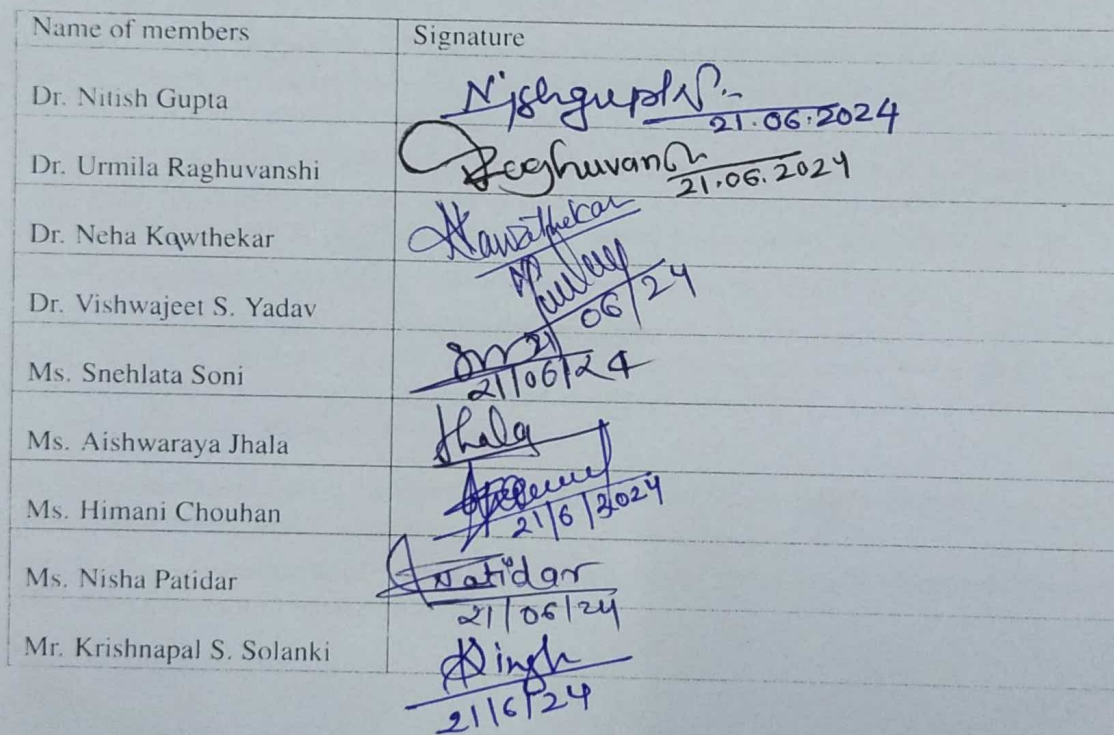 Name of members Signature
Dr. Nitish Gupta Nishgupta
21.06.2024
Dr. Urmila Raghuvanshi Raghuvan
21.06.2024
Dr. Neha Kawthekar Kawthekar
Dr. Vishwajeet S. Yadav
21/06/24
Ms. Snehlata Soni
21/06/24
Ms. Aishwaraya Jhala Jhala
Ms. Himani Chouhan
21/6/2024
Ms. Nisha Patidar Patidar
21/06/24
Mr. Krishnapal S. Solanki Singh
21/6/24